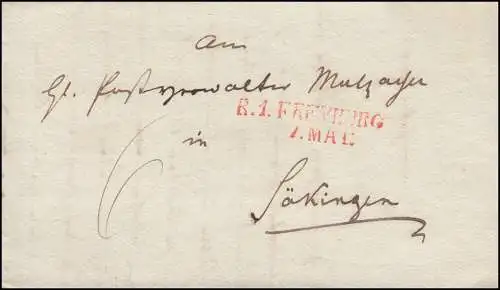 An
H. Postverwalter Mutzacher
R.1. FREYBURG
7. MAI.
in
6
Säkingen